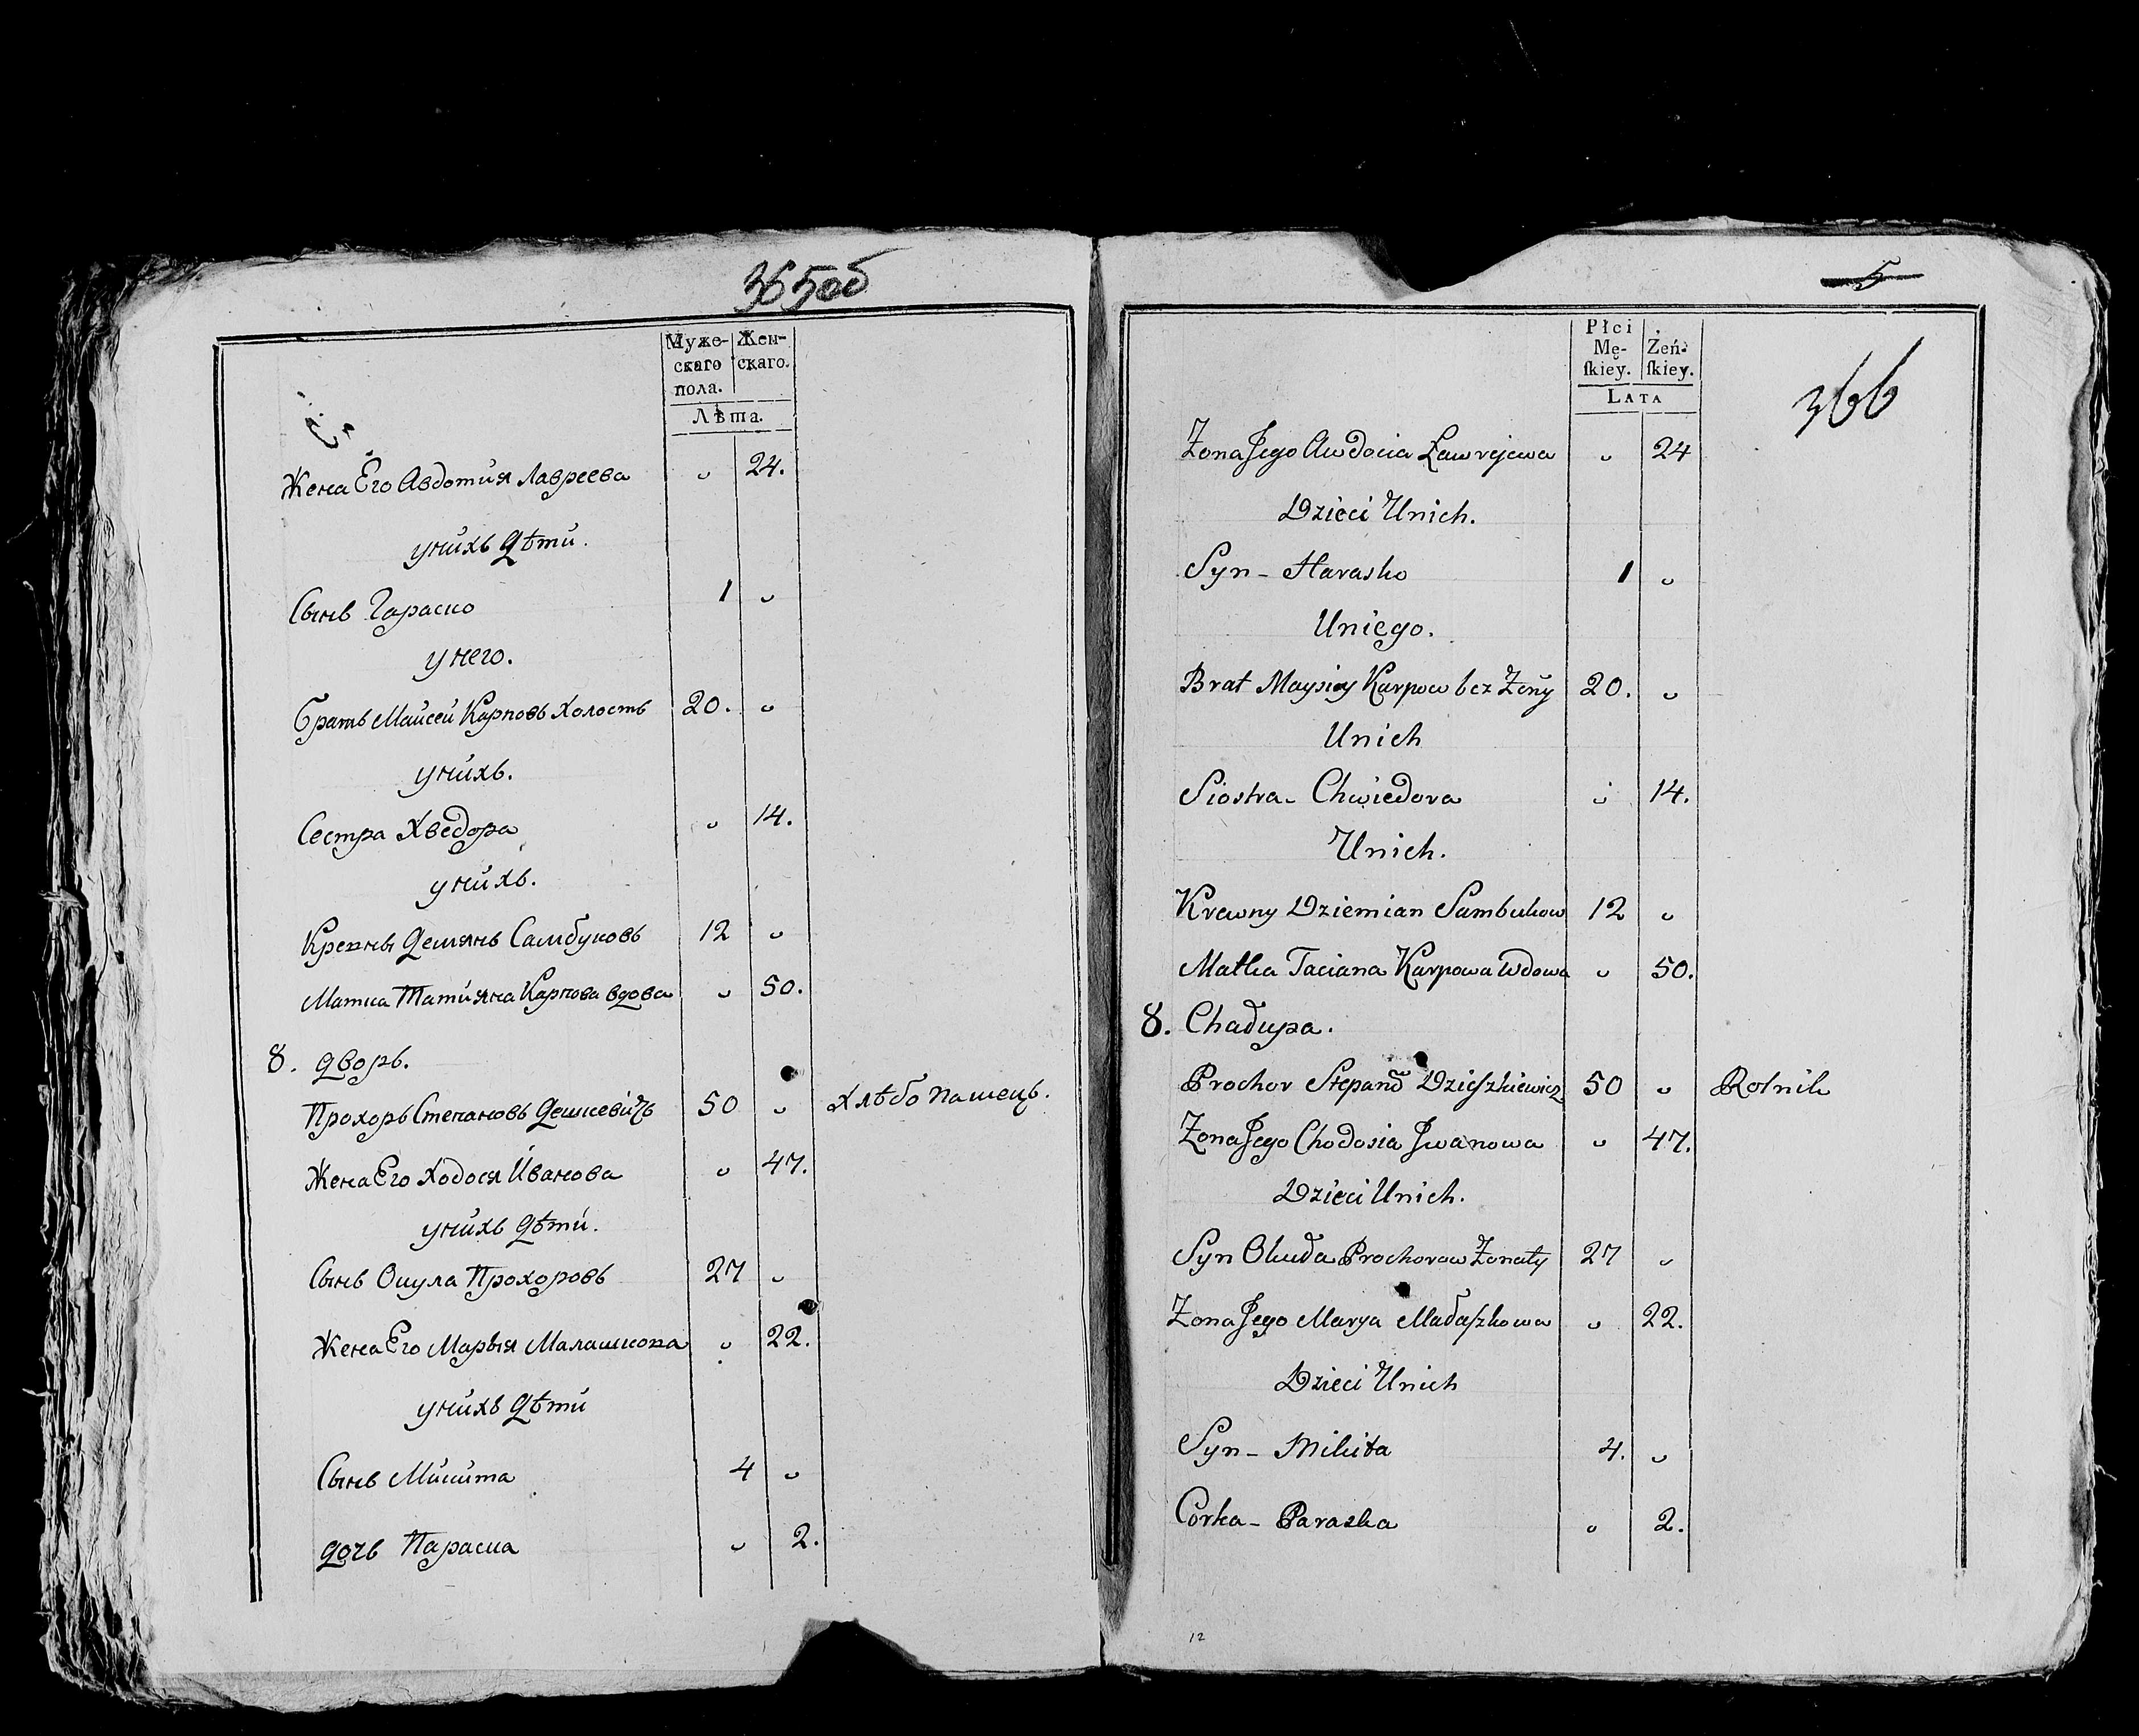 365об
Муже-
скаго
пола.
Жен-
скаго.
Лѣта.
Жена Его Авдотия Лавреева " 24.
унихъ дѣти.
Сынъ Гараско 1 "
унего.
братъ Майсей Карповъ холостъ 20. "
унихъ.
Сестра Хведора " 14.
унихъ.
Кревны Демянъ Самбуковъ 12 "
Матка Татияна Карпова вдова " 50.
8. дворъ.
Прохоръ Степановъ Дешкевичъ 50 " хлѣбопашецъ.
Жена Его Ходося Иванова " 47.
унихъ дѣти.
Сынъ Окула Прохоровъ 27 "
Жена Его Марья Малашкова " 22.
унихъ дѣти
Сынъ Микита 4 "
дочь Параска " 2.
5
366
Płci
Mę-
ſkiey.
Żeń-
ſkiey.
LATA
Żona Jego Awdocia Ławrejewa " 24
Dzieci Unich.
Syn - Harasko 1 "
Uniego.
Brat Maysiey Karpow bez Żony 20. "
Unich
Siostra - Chwiedora " 14.
Unich.
Krewny Dziemian Sambukow 12 "
Matka Taciana Karpowa Wdowa " 50.
8. Chałupa.
Prochor Stepanow Dzieszkiewicz 50 " Rolnik
Żona Jego Chodosia Jwanowa " 47.
Dzieci Unich.
Syn Okuła Prochorow Żonaty 27 "
Żona Jego Marya Małaszkowa " 22.
Dzieci Unich
Syn - Mikita 4. "
Córka - Paraska " 2.
12